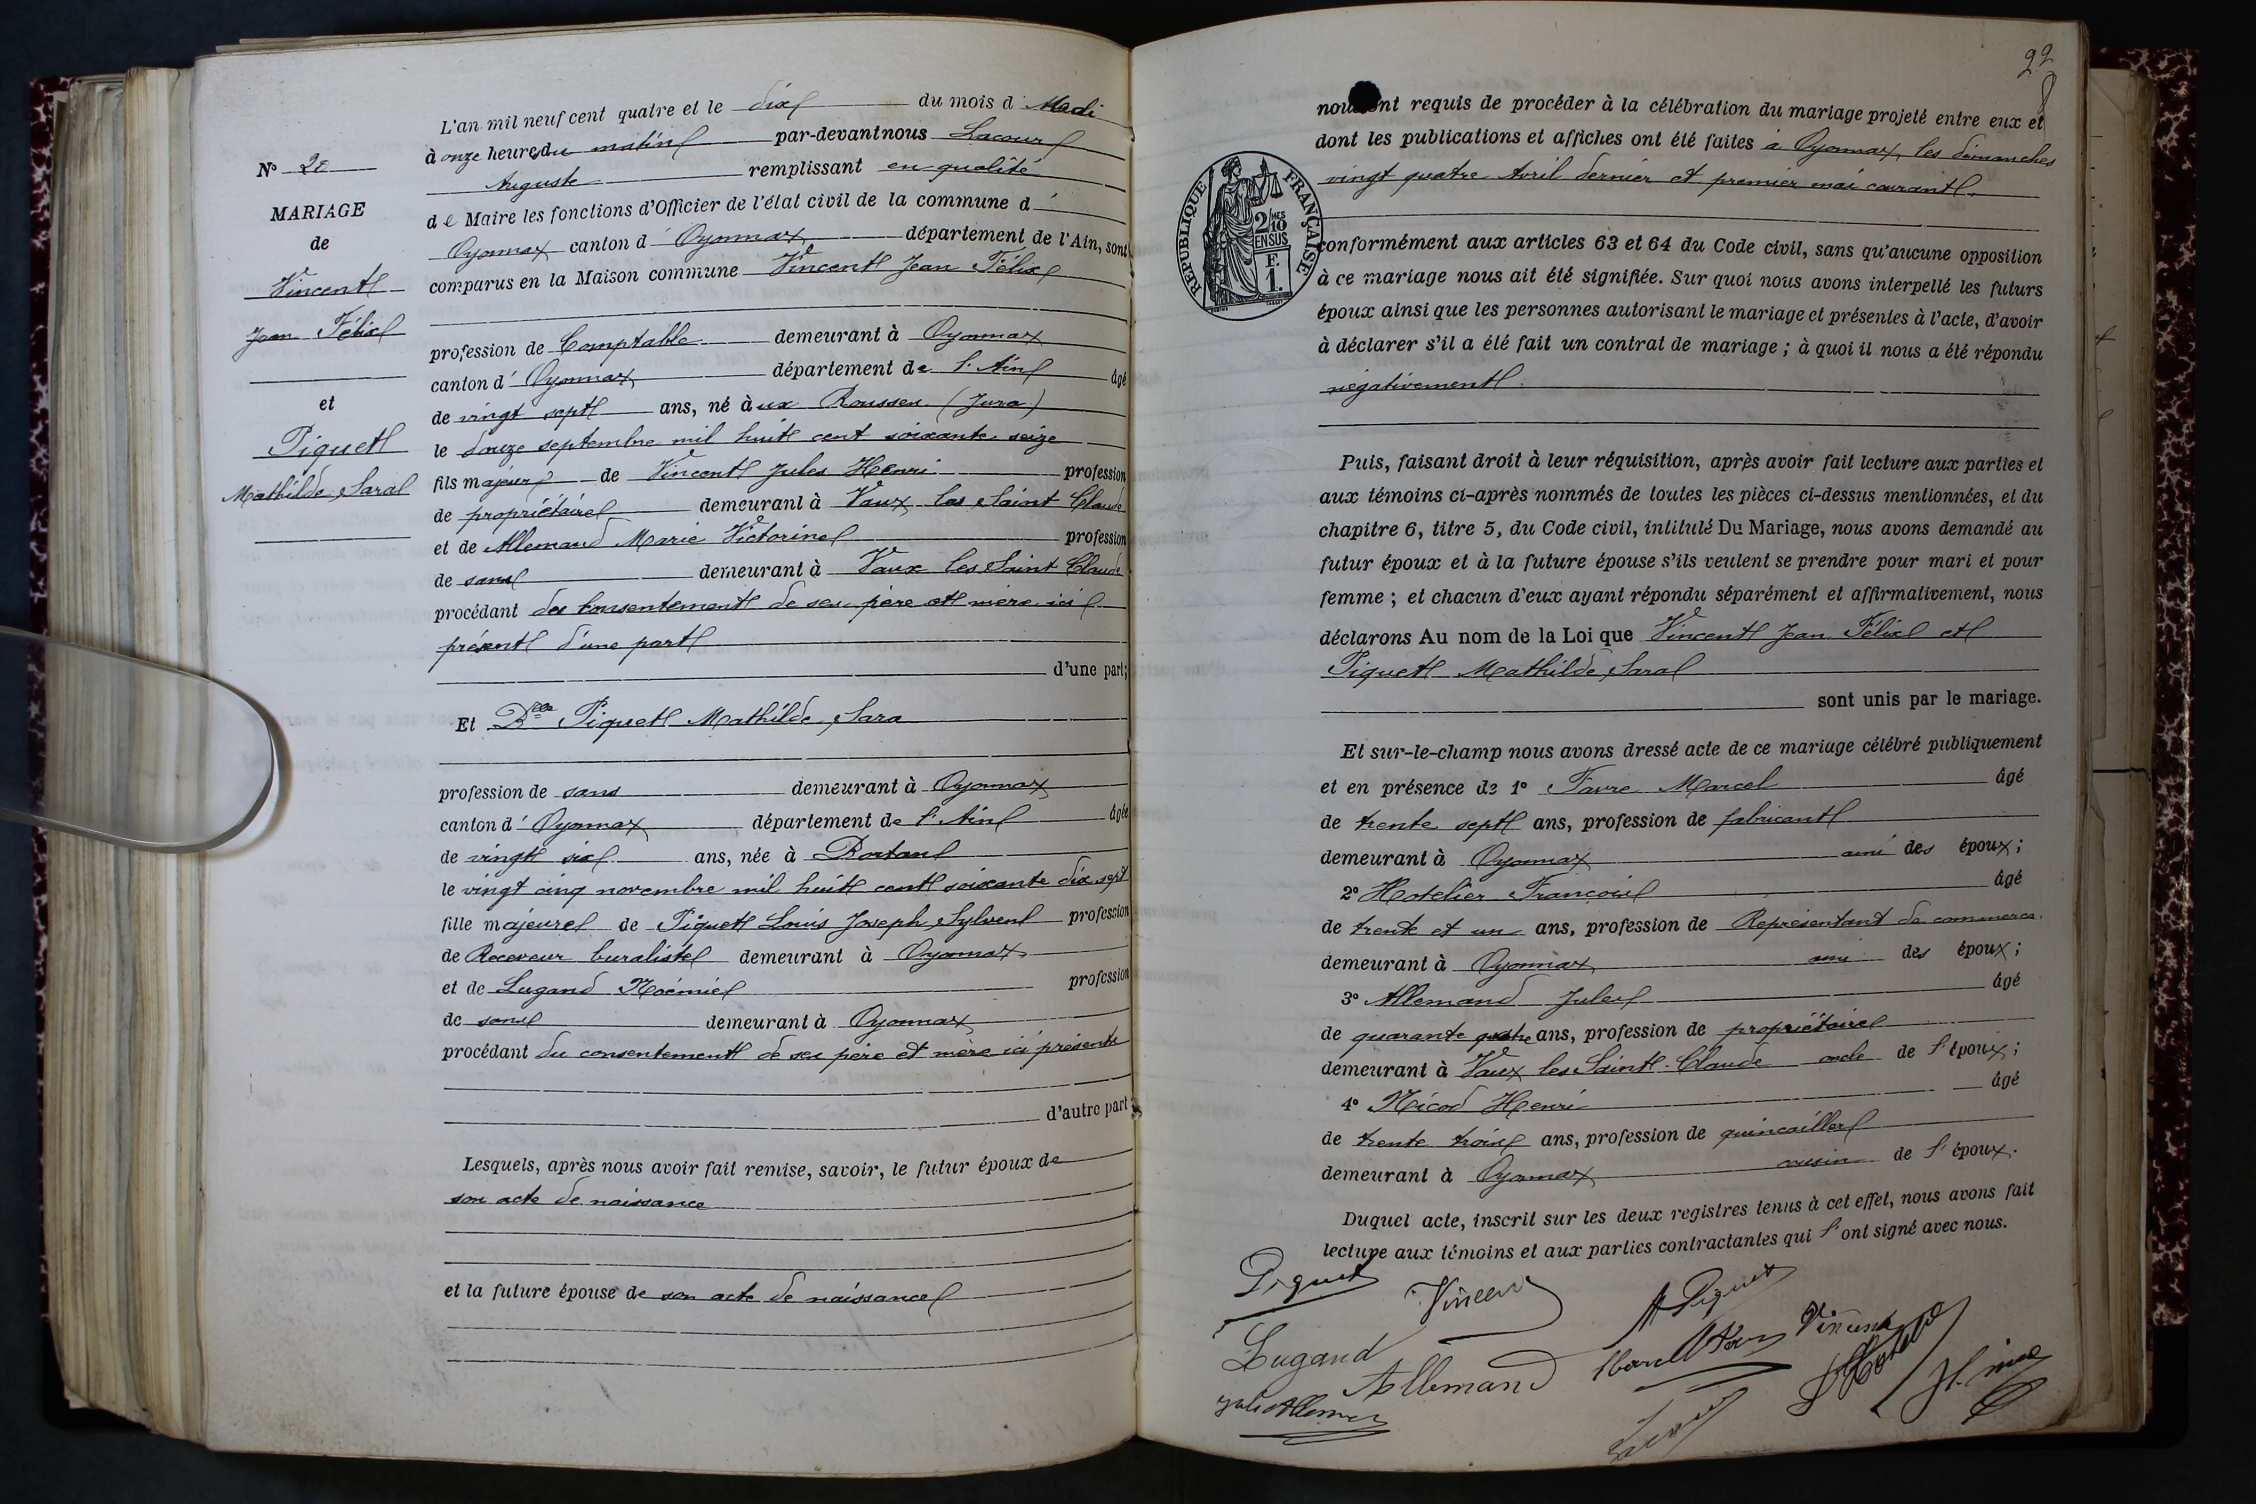 L'an mil neuf cent quatre et le dix du mois d
à onze heures du matin par-devant nous Lacour
Auguste remplissant en qualité
de Maire les fonctions d'Officier de l'état civil de la commune d'
Oyonnax canton d' Oyonnax département de l'Ain, sont
comparus en la Maison commune Vincent Jean Félix
profession de Comptable demeurant à Oyonnax
canton d' Oyonnax département de l'Ain âgé
de vingt sept ans, né aux Rousses (Jura)
le douze septembre mil huit cent soixante seize
fils majeur de Vincent Jules Henri profession
de propriétaire demeurant à Vaux les Saint Claude
et de Allemand Marie Victorine profession
de sans demeurant à Vaux les Saint Claude
procédant du consentement de ses père et mère ici
présent d'une part
d'une part;
Et Dlle Piquet Mathilde Sara
profession de sans demeurant à Oyonnax
canton d' Oyonnax département de l'Ain âgée
de vingt six ans, née à Dortan
le vingt cinq novembre mil huit cent soixante dix sept
fille majeure de Piquet Louis Joseph Sylvent profession
de Receveur buraliste demeurant à Oyonnax
et de Lugand Noémie profession
de sans demeurant à Oyonnax
procédant du consentement de ses père et mère ici présents
d'autre part
Lesquels, après nous avoir fait remise, savoir, le futur époux de
son acte de naissance
et la future épouse de son acte de naissance
N°
MARIAGE
de
Vincent
Jean Félix
et
Piquet
Mathilde Sara
22
nous ont requis de procéder à la célébration du mariage projeté entre eux et
dont les publications et affiches ont été faites à Oyonnax les dimanches
vingt quatre Avril dernier et premier mai courant.
RÉPUBLIQUE FRANÇAISE
2/10 MES
EN SUS
F.
1.
conformément aux articles 63 et 64 du Code civil, sans qu'aucune opposition
à ce mariage nous ait été signifiée. Sur quoi nous avons interpellé les futurs
époux ainsi que les personnes autorisant le mariage et présentes à l'acte, d'avoir
à déclarer s'il a été fait un contrat de mariage ; à quoi il nous a été répondu
négativement
Puis, faisant droit à leur réquisition, après avoir fait lecture aux parties et
aux témoins ci-après nommés de toutes les pièces ci-dessus mentionnées, et du
chapitre 6, titre 5, du Code civil, intitulé Du Mariage, nous avons demandé au
futur époux et à la future épouse s'ils veulent se prendre pour mari et pour
femme ; et chacun d'eux ayant répondu séparément et affirmativement, nous
déclarons Au nom de la Loi que Vincent Jean Félix et
Piquet Mathilde Sara
sont unis par le mariage.
Et sur-le-champ nous avons dressé acte de ce mariage célébré publiquement
et en présence de 1° Favre Marcel âgé
de trente sept ans, profession de fabricant
demeurant à Oyonnax ami des époux ;
2° Hotelier François âgé
de trente et un ans, profession de Représentant de commerce.
demeurant à Oyonnax ami des époux ;
3° Allemand Jules âgé
de quarante quatre ans, profession de propriétaire
demeurant à Vaux les Saint-Claude oncle de l'époux ;
4° Nicod Henri âgé
de trente trois ans, profession de quincailler
demeurant à Oyonnax cousin de l'époux.
Duquel acte, inscrit sur les deux registres tenus à cet effet, nous avons fait
lecture aux témoins et aux parties contractantes qui l'ont signé avec nous.
Piquet Vincent M Piquet
Lugand Allemand Vincent